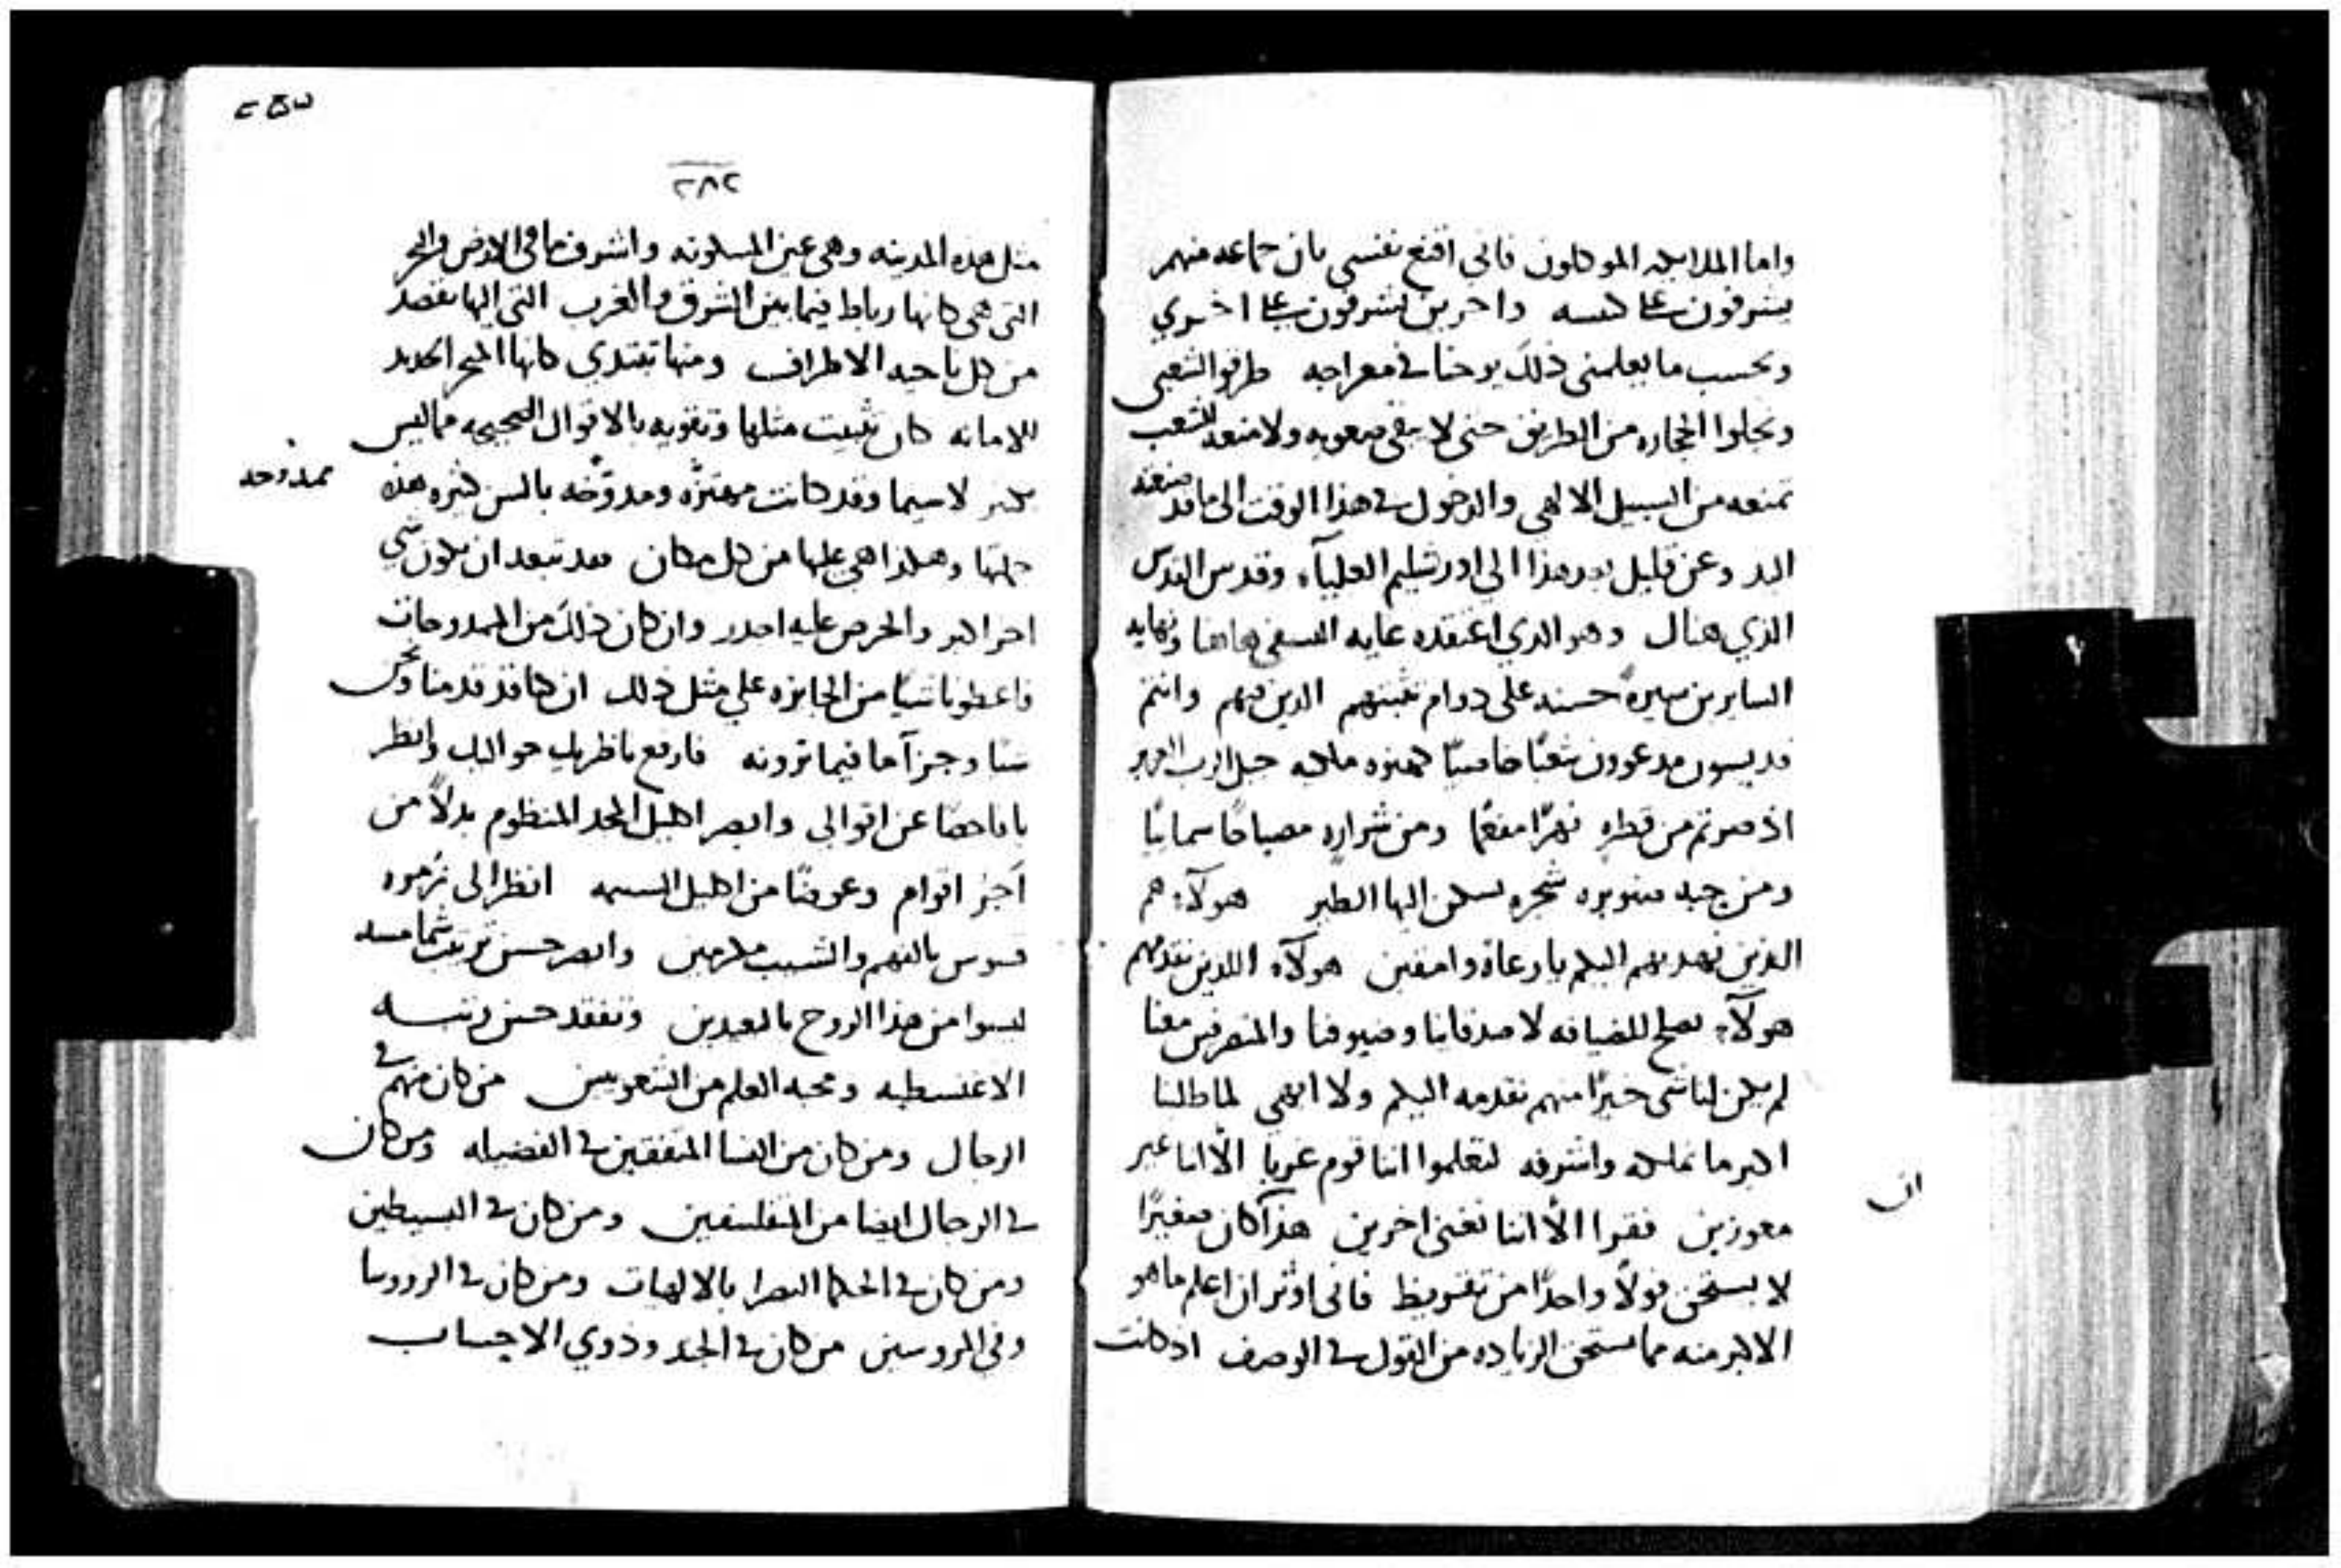 واما الملايكه الموكلون فاني اقنع نفسي بان جماعه منهم
يشرفون على كنيسه واخرين يشرفون على اخري
وبحسب ما يعلمني ذلك يوحنا في معراجه طرقوا لشعبي
ونحلوا الحجاره من الطريق حتى لا يبقى صعوبه ولا منعه للشعب
تمنعه من السبيل الالهي والدخول في هذا الوقت الى ما قد صنعته
اليد وعن قليل بعد هذا الى اورشليم العلياء وقدس القدس
الذي هناك وهو الذي اعتقده غايه السعي هاهنا ونهايه
السايرين سيرةً حسنه على دوام تثبتهم الذين منهم وانتم
قديسون مدعوون شعبًا خاصيًا كهنوه ملكيه حبل الرب العزيز
اذ صرتم من قطره نهرًا مفعمًا ومن شراره مصباحًا سمايًا
ومن حبه صنوبره شجره تسكن اليها الطير هولآء هم
الذين نهديهم اليكم يا رعاه وامقين هولآء اللذين نقدمهم
هولآء يصلح للضيافه لاصدقاينا وضيوفنا والمتغربين معنا
لم يكن لنا شي خيرًا منهم نقدمه اليكم ولا ابهي لما طلبنا
اكبر ما نملكه واشرفه لتعلموا اننا قوم غربا الّا اننا غير
ان
معوزين فقرا الّا اننا نغني اخرين هذا كان صغيرًا
لا يستحق قولًا واحدًا من تقريظ فاني اوثر ان اعلم ما هو
الاكبر منه مما يستحق الزياده من القول في الوصف اذ كانت
٢٨٢
مثل هذه المدينه وهي عين المسكونه واشرف ما في الارض والبحر
التي هي كانها رباط فيما بين الشرق والغرب التي اليها تقصد
من كل ناحيه الاطراف ومنها تبتدي كانها المتجر الجديد
للامانه كان تثبيت مثلها وتقويه بالاقوال الصحيحه مما ليس
بكبير لا سيما وقد كانت مهتزّه ومدوّخه بالسن كثيره هذه
ممدوحه
حملتها وهكذا هي عليها من كل مكان فقد تبعد ان يكون شي
اخر اكبر والحرص عليه اجدر وان كان ذلك من الممدوحات
فاعطونا شيًا من الجايزه علي مثل ذلك ان كنا قد قدمنا نحن
شيًا وجزآ ما فيما ترونه فارفع ناظريك حواليك وانظر
يا فاحصًا عن اقوالي وابصر اكليل المجد المنظوم بدلًا من
اجز اقوام وعوضًا من اكليل السبه انظر الى زمره
قسوس بالفهم والشيب مكرمين وابصر حسن ترتيب شمامسه
ليسوا من هذا الروح بالبعيدين وتفقد حسن رتبه
الاغنسطيه ومحبه العلم من الشعوبيين من كان منهم في
الرجال ومن كان من النسا المتفقين في الفضيله ومن كان
في الرجال ايضا من المتفلسفين ومن كان في البسيطين
ومن كان في الحكما البصرا بالالهيات ومن كان في الروروسا
وفي المروسين من كان في الجند وذوي الاحساب